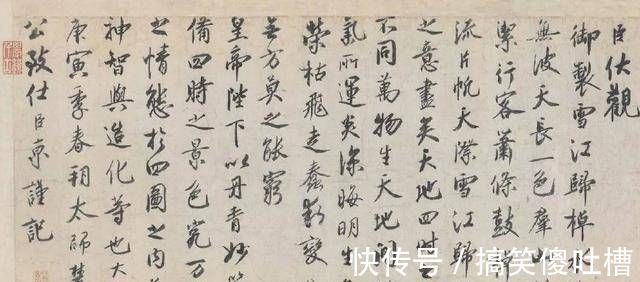 臣伏觀
御製雪江歸棹
無波天長一色羣山
潔行客蕭條鼓
流片帆天際雪江歸
之意盡矣天地四時
不同萬物生天地
氣所運炎涼晦明生
榮枯飛走蠢動變
無方莫之能窮
皇帝陛下以丹青妙筆
備四時之景色究万
之情態於四圖之内
神智與造化等也大
庚寅季春朔太師楚
公致仕臣京謹記
快传号／搞笑傻吐槽